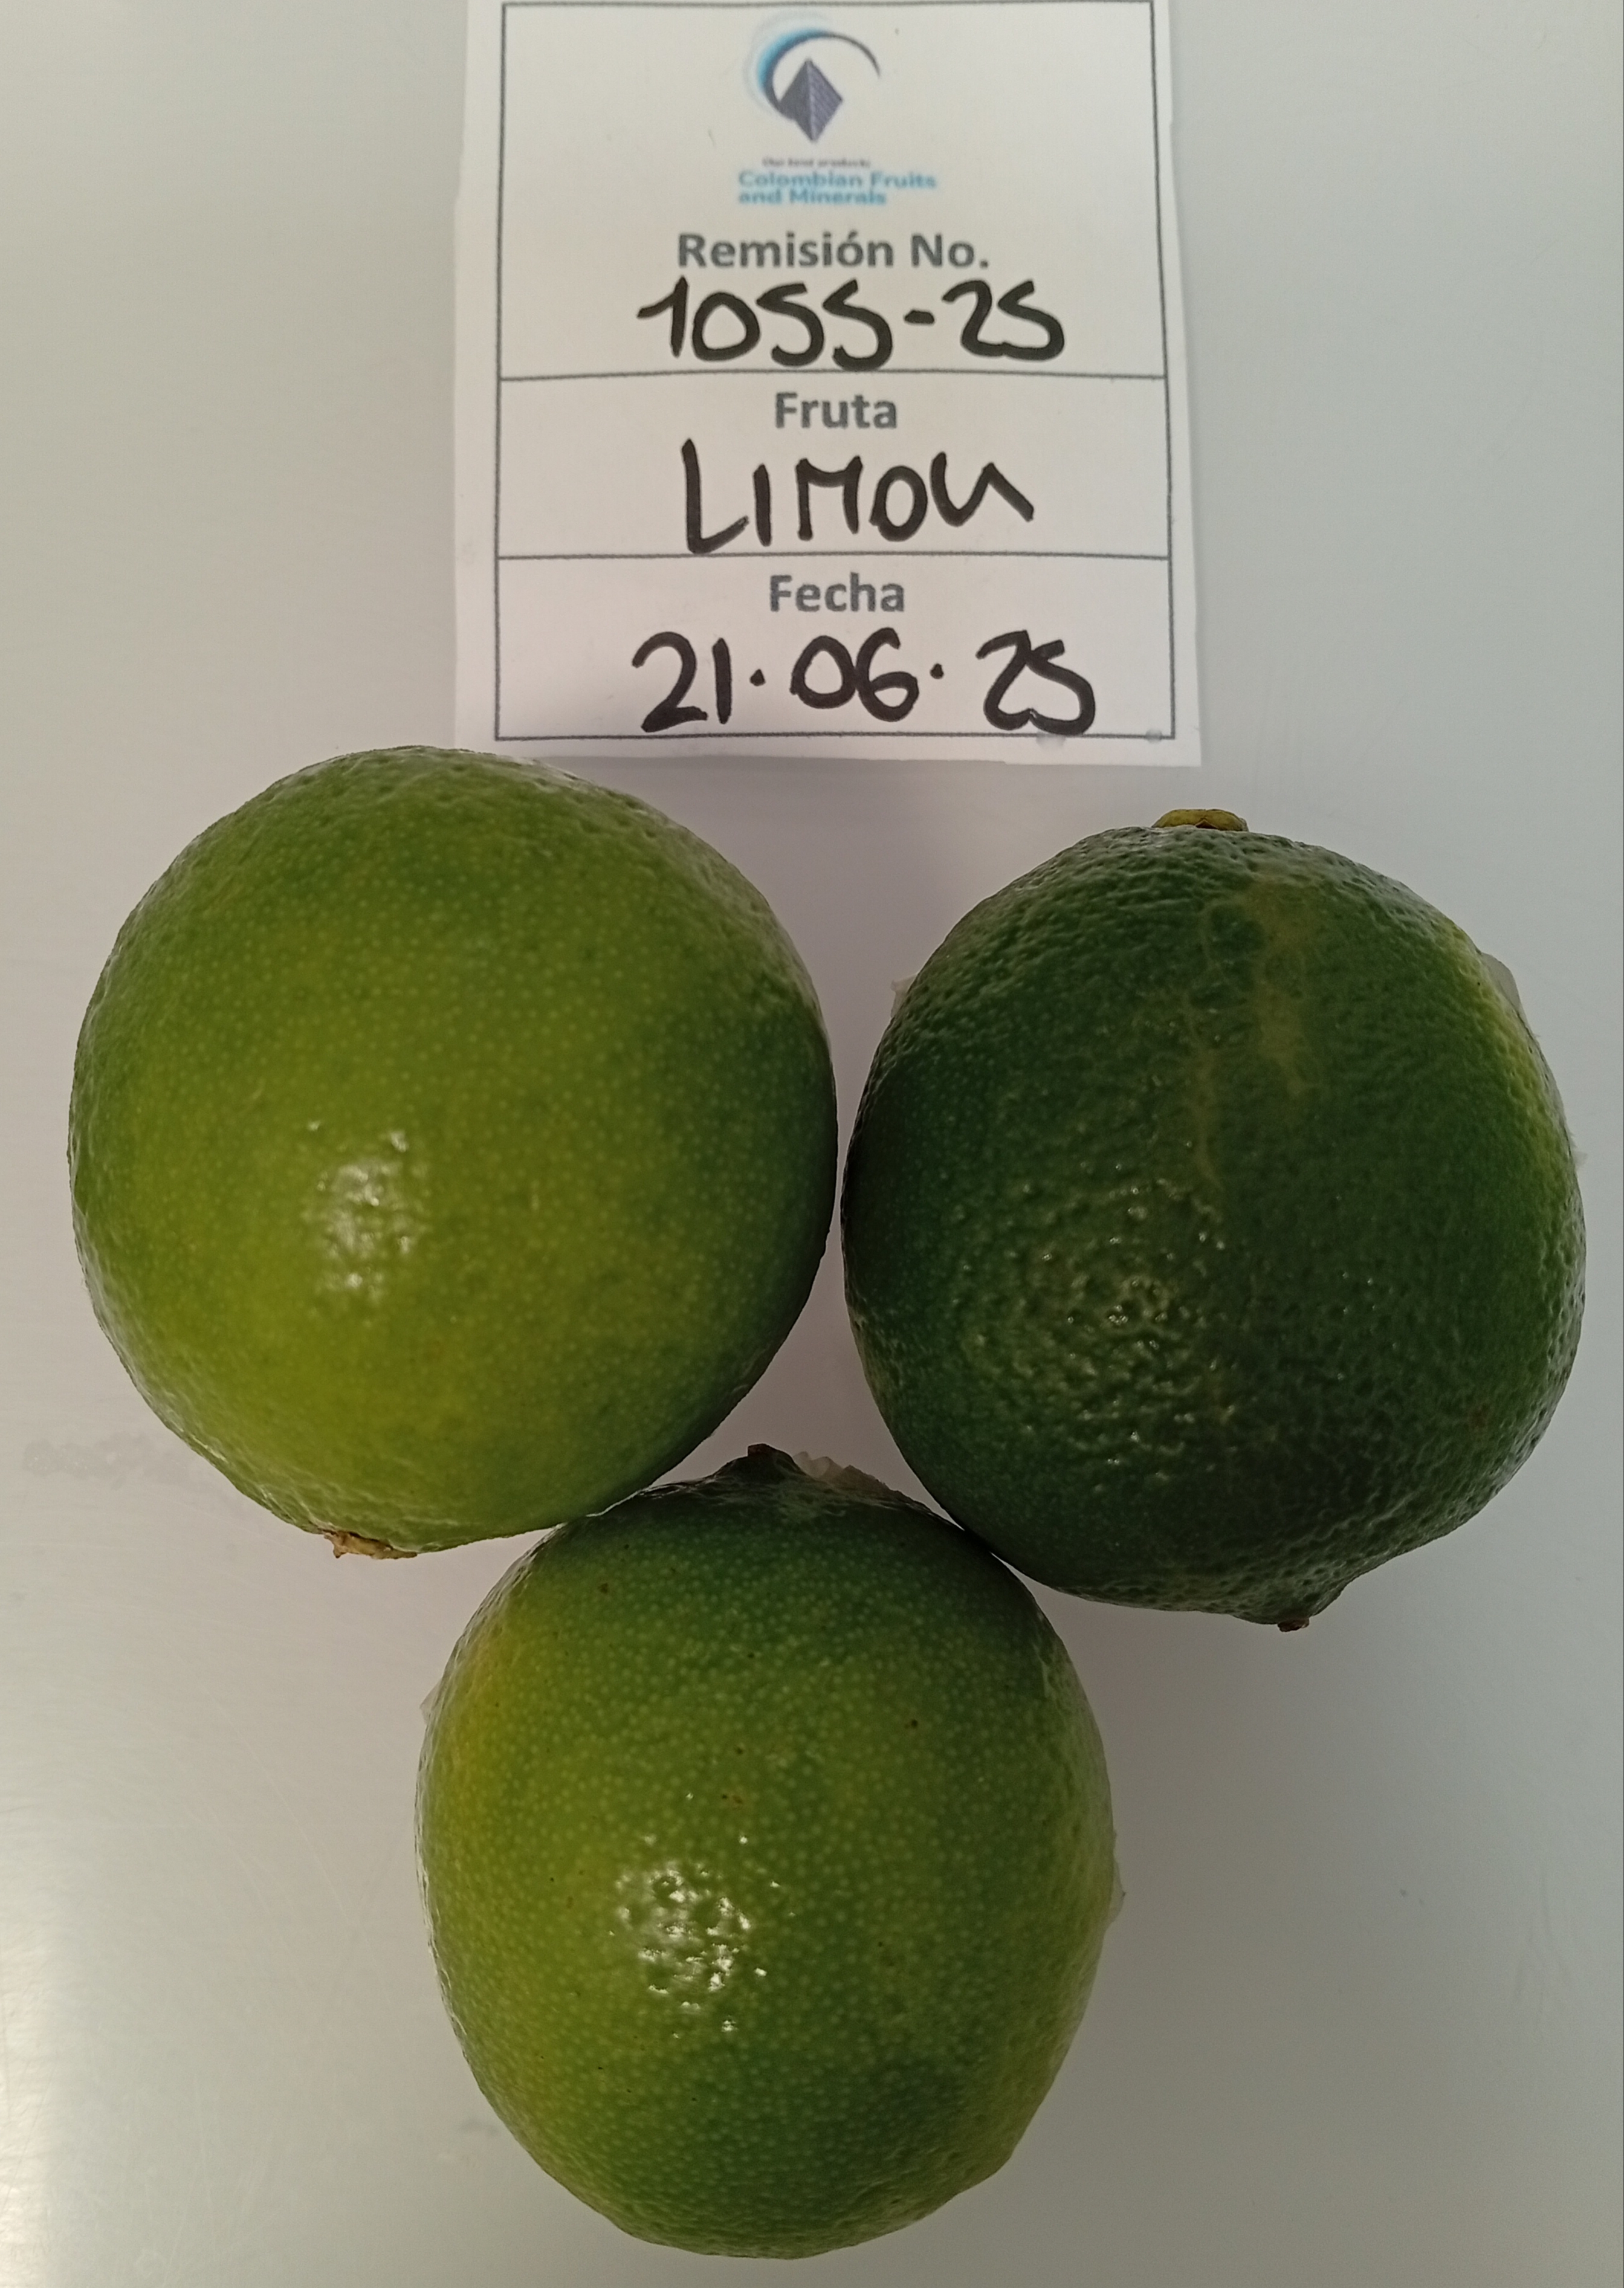 Our best products
Colombian Fruits
and Minerals
Remisión No.
1055-25
Fruta
LIMON
Fecha
21.06.25